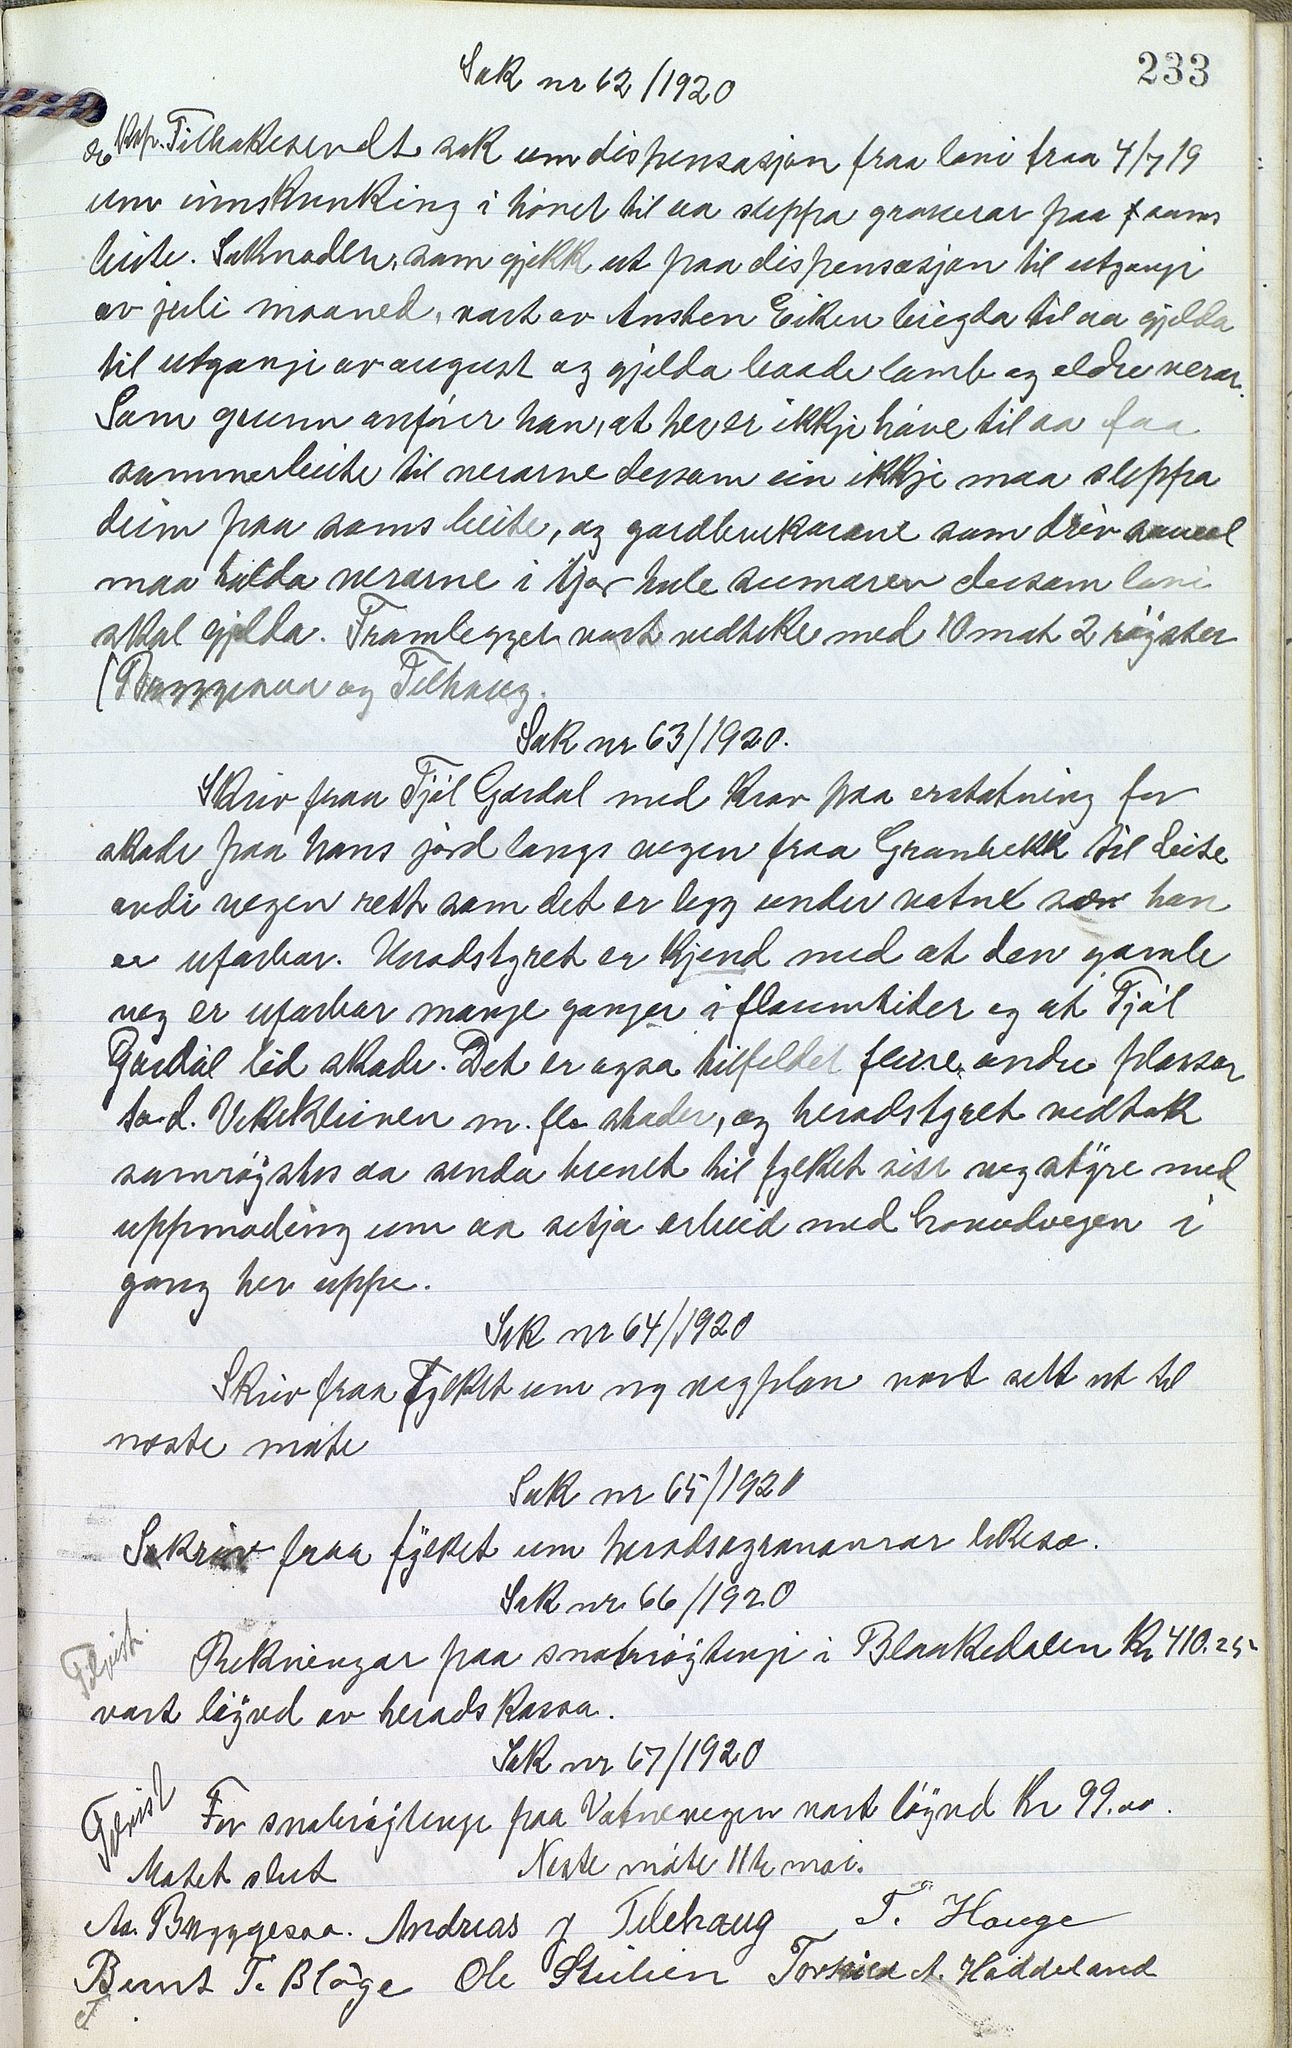 233
Sak nr 62/1920
Eksp. Tilbakesendt sak um dispensasjon fraa lovi fraa 4/7 19
um innskrenking i hövet til aa sleppa graverar paa sams
beite. Söknaden, som gjekk ut paa dispensasjon til utgangi
av juli maaned, vart av Ansten Eiken beigda til aa gjelda
til utgangi av august og gjelda baade lamb og eldre verar.
Som grunn anförer han, at her er ikkje höve til aa faa
sommerbeite til verarne dersom ein ikkje maa sleppa
deim paa sams beite, og gardbrukarane som driv saueal
maa halda verarne i hus hele sumaren dersom lovi
skal gjelda. Framlegget vart vedteke med 10 mot 2 röyster
(Bryggesaa og Tilhaug.
Sak nr 63/1920.
Skriv fraa Tjöl Gardal med krav paa erstatning for
skade paa hans jord langs vegen fraa Granbekk til Leite
avdi vegen rett som det er legg under vatne so han
er ufarbar. Heradstyret er kjend med at den gamle
veg er ufarbar mange ganger i flaumtider og at Tjöl
Gardal lid skade. Det er ogsaa tilfeldet fleire andre plassar
t.d. Vekekleiven m. fl. stader, og heradstyret vedtok
samröystes aa senda brevet til fylket sitt vegstyre med
uppmoding um aa setja arbeid med hovudvegen i
gang her uppe.
Sak nr 64/1920
Skriv fraa Fylket um ny vegplan vart sett ut til
neste möte
Sak nr 65/1920
Skriv fraa fylket um heradsagronomar likeso.
Sak nr 66/1920
Rekningar paa snöbröytingi i Blaakedalen Kr 410.25
vart löyvd av heradskassa.
Sak nr 67/1920
For snöbröytingi paa Vatnevegen vart löyvd Kr 99.00.
Mötet slut Neste möte 11te mai.
As. Bryggesaa. Andreas J Tilehaug T. Hauge
Bernt T. Bläge Ole Stulien Torkild A. Haddeland